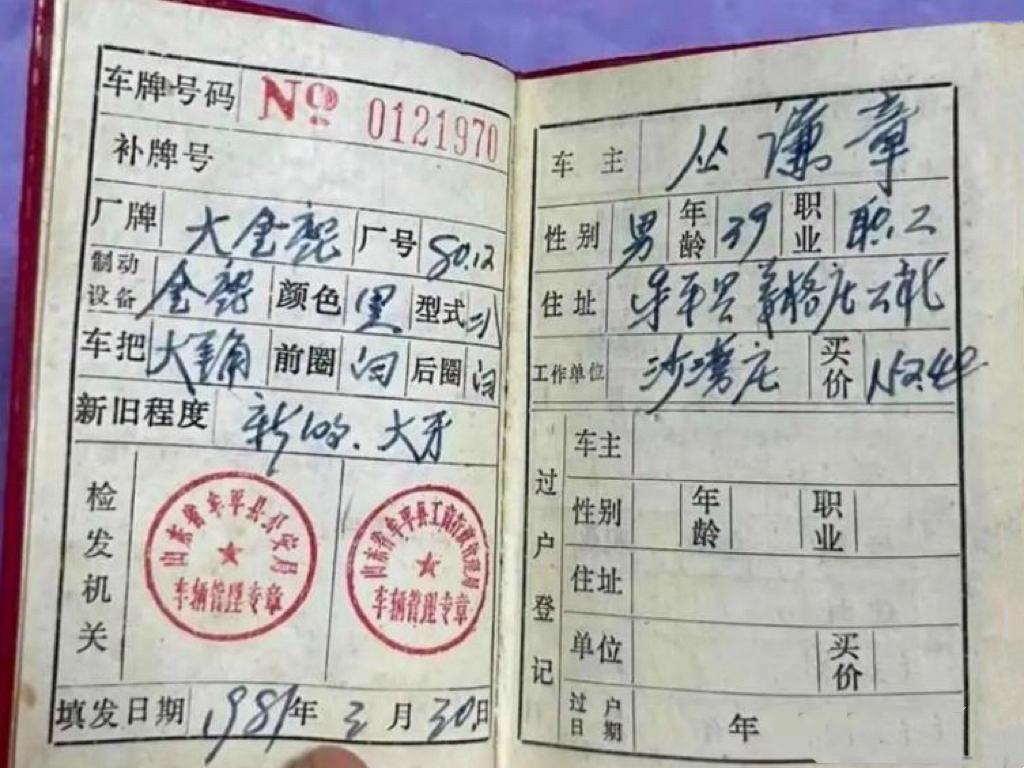 车牌号码 No 0121970
补牌号
厂牌 大金鹿 厂号 80.12
制动设备 金鹿 颜色 黑 型式 二八
车把 大 前圈 白 后圈 白
新旧程度 新
检发机关
山东省牟平县公安局
车辆管理专章
山东省牟平县工商行政管理局
车辆管理专章
填发日期 1981年 3月30日
车主 丛谦章
性别 男 年龄 39 职业 职工
住址 牟平县 格庄
工作单位 沙 庄 买价
过户登记
车主
性别 年龄 职业
住址
单位 买价
过户日期 年